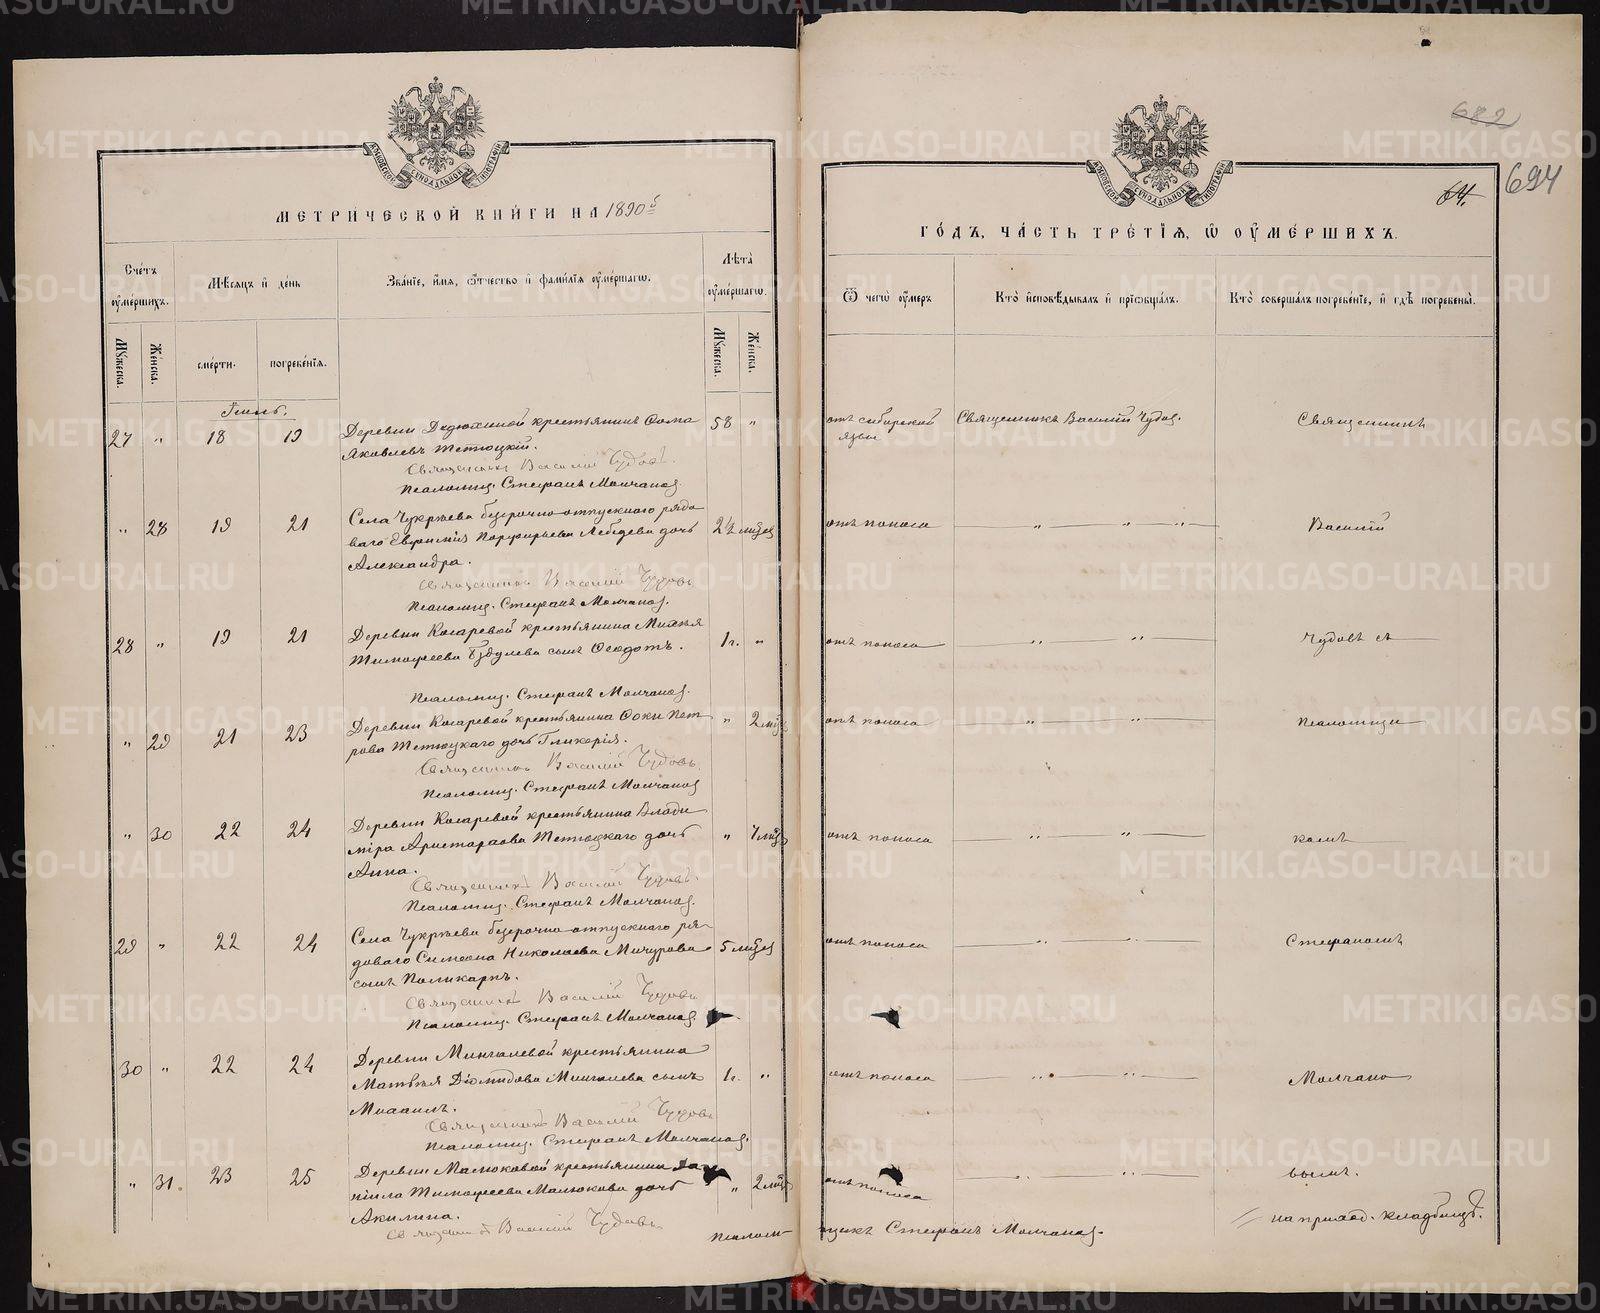 МЕТРИЧЕСКОЙ КНИГИ НА 1890й
Счетъ умершихъ.
Мѣсяцъ и день
Званіе, имя, отчество и фамилія умершаго.
Лѣта умершаго.
Мужеска.
Женска.
смерти.
погребенія.
Мужеска.
Женска.
Іюль.
27 " 18 19 Деревни Дедюхиной крестьянинъ Ѳома 58 "
Яковлевъ Тетюцкій.
Священникъ Василій Чудовъ.
Псаломщ. Стефанъ Молчановъ.
" 28 19 21 Села Чукрѣева безсрочно-отпускного рядо 2½ мѣсяц
ваго Евфимія Порфирьева Лебедева дочь
Александра.
Священникъ Василій Чудовъ
Псаломщ. Стефанъ Молчановъ.
28 " 19 21 Деревни Косаревой крестьянина 1 г. "
Тимофеева сынъ Ѳеодотъ.
Псаломщ. Стефанъ Молчановъ.
" 29 21 23 Деревни Косаревой крестьянина Ѳоки Пет " 2 мѣс
рова Тетюцкаго дочь Гликерія.
Священникъ Василій Чудовъ.
Псаломщ. Стефанъ Молчановъ
" 30 22 24 Деревни Косаревой крестьянина Влади "
міра Аристархова Тетюцкаго дочь
Анна.
Священникъ Василій Чудовъ.
Псаломщ. Стефанъ Молчановъ.
29 " 22 24 Села Чукрѣева безсрочно-отпускного ря- 5 мѣсяц
доваго Симеона Николаева Мичурова
сынъ Поликарпъ.
Священникъ Василій Чудовъ
Псаломщ. Стефанъ Молчановъ.
30 " 22 24 Деревни Мингалевой крестьянина 1 г. "
Матвѣя Діомидова Мингалева сынъ
Михаилъ.
Священникъ Василій Чудовъ
Псаломщ. Стефанъ Молчановъ.
" 31. 23 25 Деревни Малюковой крестьянина Да " 2 мѣс
ніила Тимофеева Малюкова дочь
Акилина.
Священникъ Василій Чудовъ
Псалом-
682
694
64.
ГОДЪ, ЧАСТЬ ТРЕТІЯ, Ѡ УМЕРШИХЪ.
Ѿ чего умеръ
Кто исповѣдывалъ и пріобщалъ.
Кто совершалъ погребеніе, и гдѣ погребены.
отъ сибирской Священникъ Василій Чудов. Священникъ
язвы
отъ поноса " " " Василій
отъ поноса " " Чудовъ съ
отъ поноса " " Псаломщи
отъ поноса " " комъ
отъ поноса " " Стефаномъ
отъ поноса " " Молчано
отъ поноса " " вымъ.
на приход. кладбищѣ.
щикъ Стефанъ Молчановъ.
METRIKI.GASO-URAL.RU